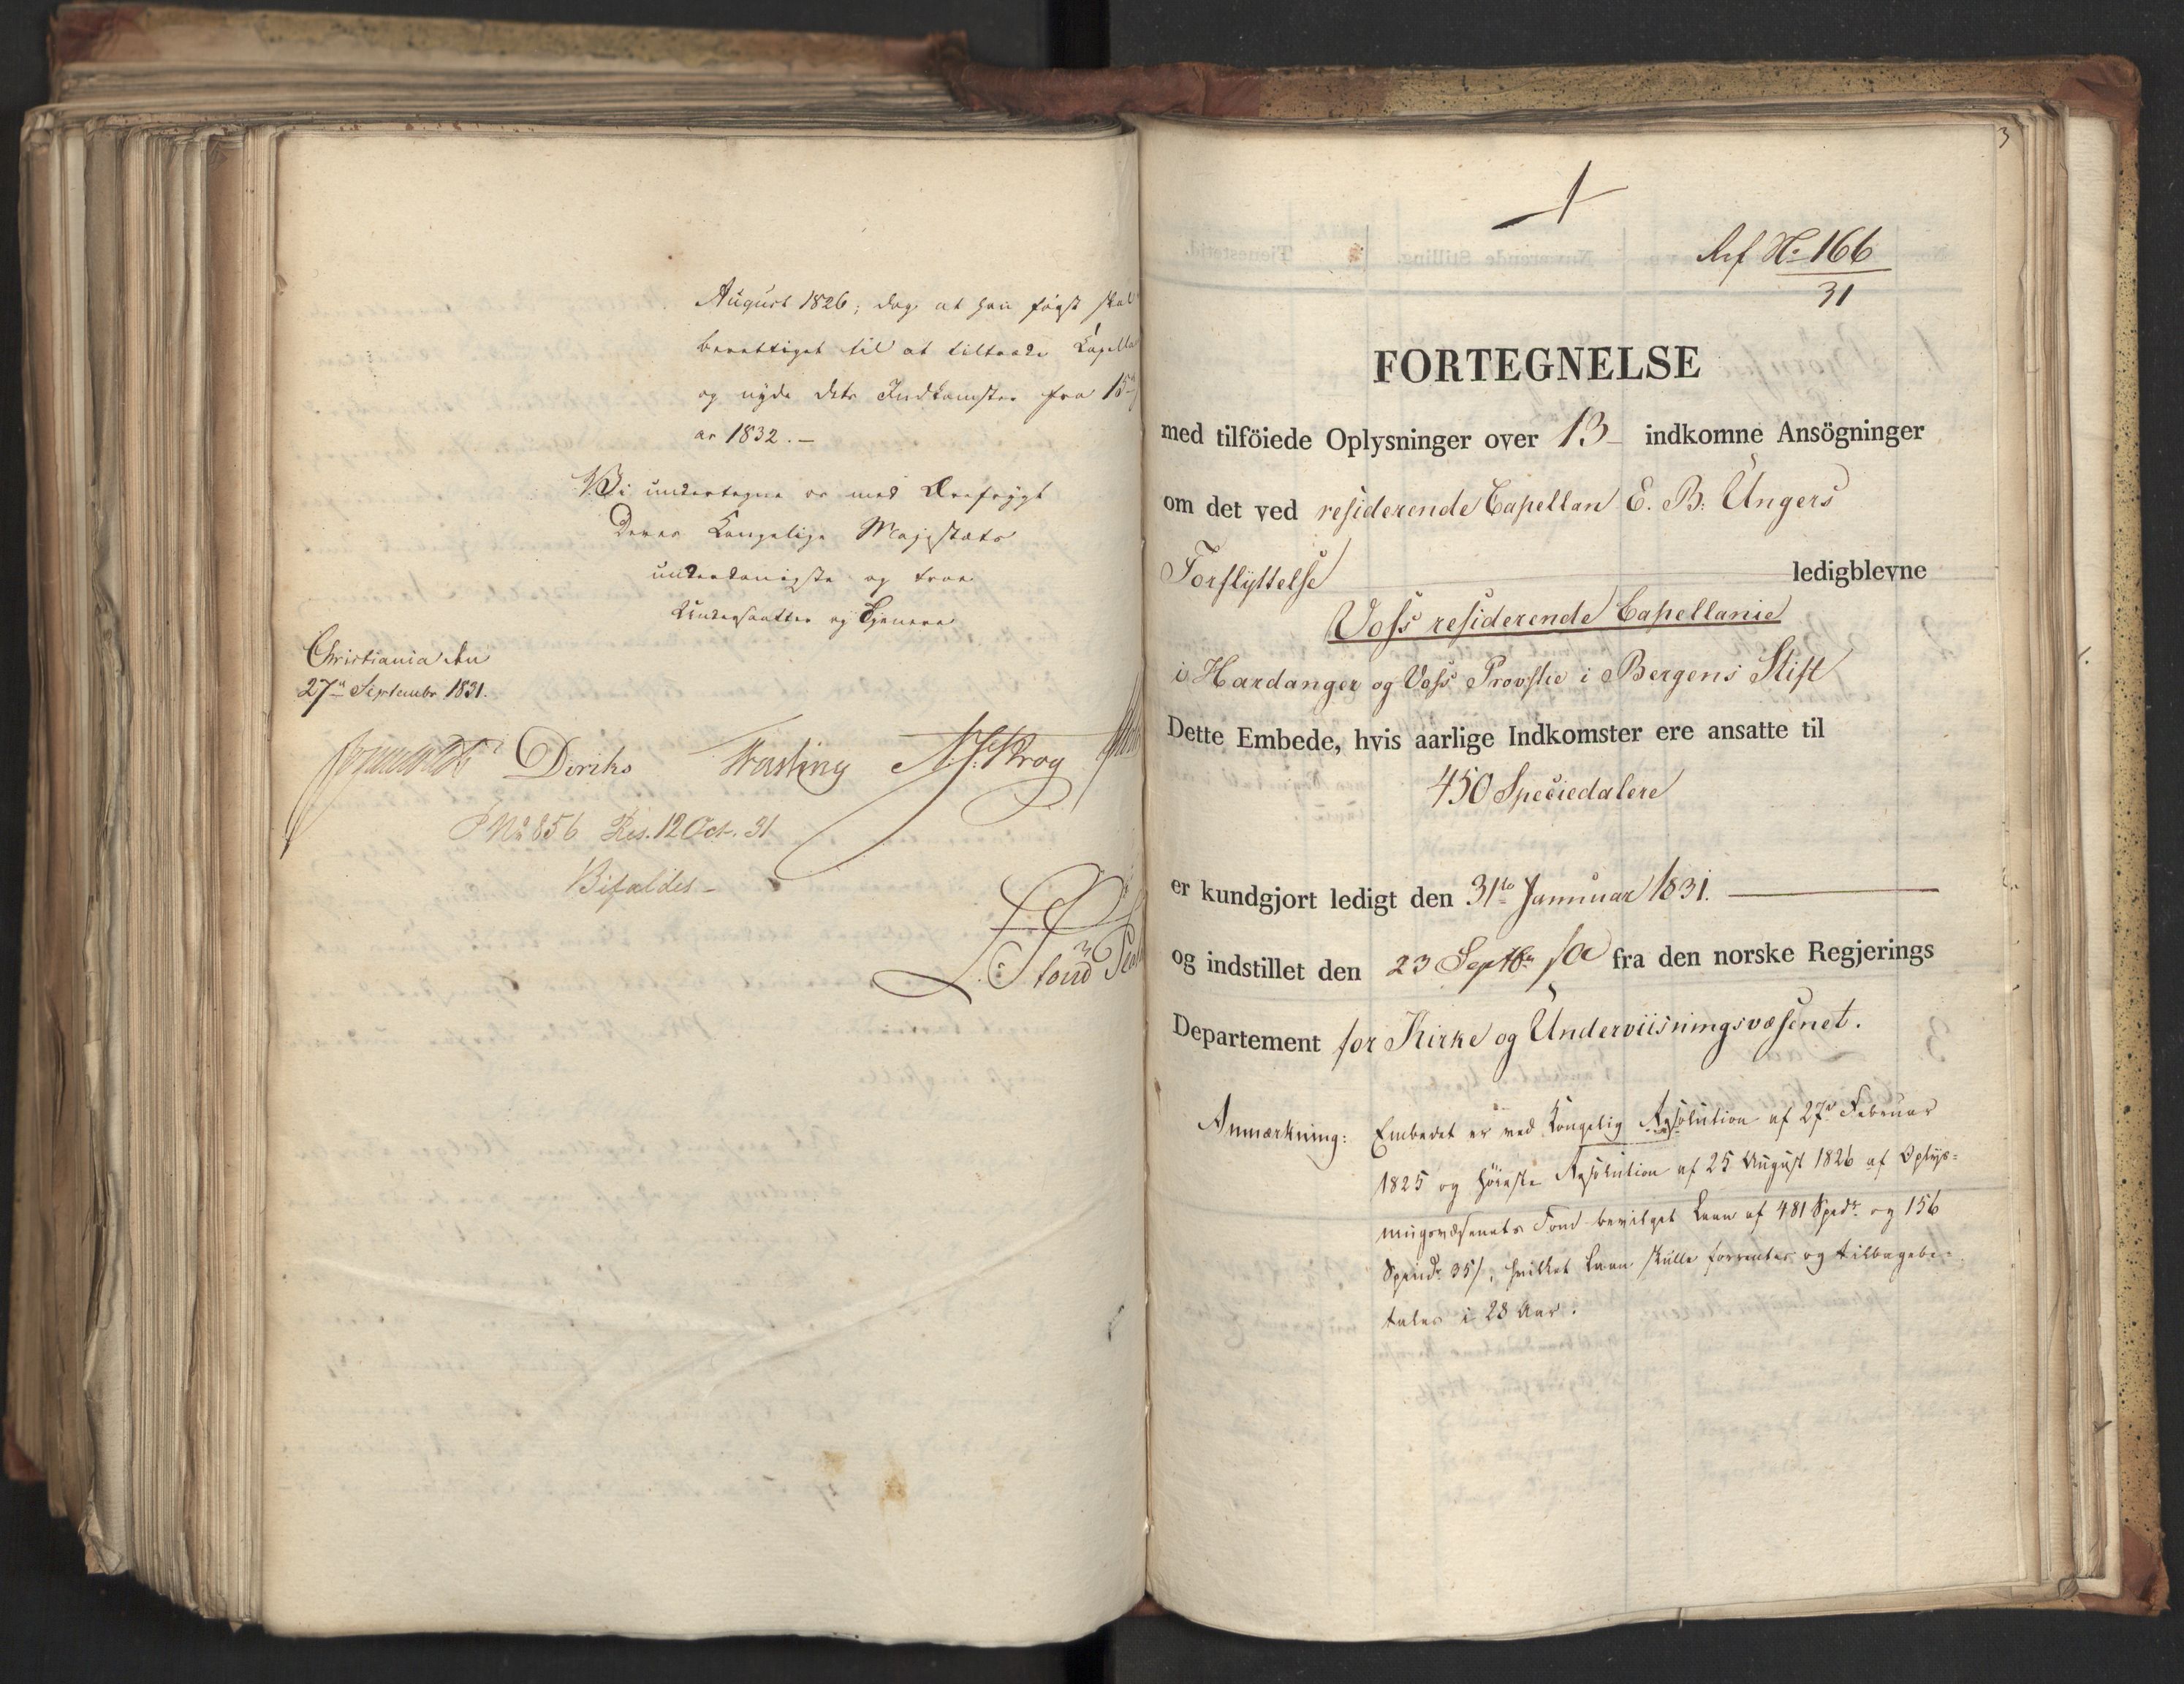 August 1826; dog at han først skal
berettiget til at tiltræde Capella
og nyde dets Indkomster fra 15
ar 1832. –
Vi undertegne os med Ærefrygt
Deres Kongelige Majestæts
underdanigste og troe
Undersaatter og Tjenere
Christiania den
27de Septembr 1831.
Diriks N. J. Krog
P No 856 Res. 12 Oct. 31
Bifaldes –
3
Ref No 166
31
FORTEGNELSE
med tilföiede Oplysninger over 13 – indkomne Ansögninger
om det ved residerende Capellan E. B. Ungers
Forflyttelse ledigblevne
Voss residerende Capellanie
i Hardanger og Voss Provstie i Bergens Stift
Dette Embede, hvis aarlige Indkomster ere ansatte til
450 Speciedalere
er kundgjort ledigt den 31te Januuar 1831.
og indstillet den 23 Septbr fra den norske Regjerings
Departement for Kirke og Underviisningsvæsenet.
Anmærkning: Embedet er ved Kongelig Resolution af 27de Februar
1825 og høieste Resolution af 25 August 1826 af Oplys-
ningsvæsenets Fond bevilget Laan af 481 Spdr og 156
Speciedr 35 /, hvilket Laan skulle forrentes og tilbagebe-
tales i 28 Aar.